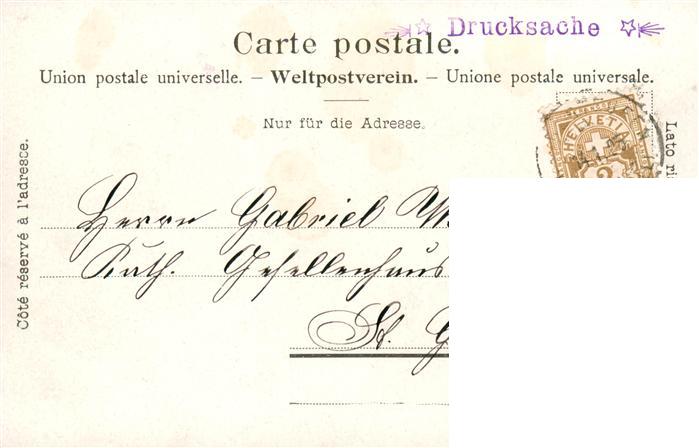 Drucksache
Carte postale.
Union postale universelle. – Weltpostverein. – Unione postale universale.
Nur für die Adresse.
Côté réservé à l'adresse.
Lato
HELVETIA
Herrn Gabriel
Kath. Gesellenhaus
St.